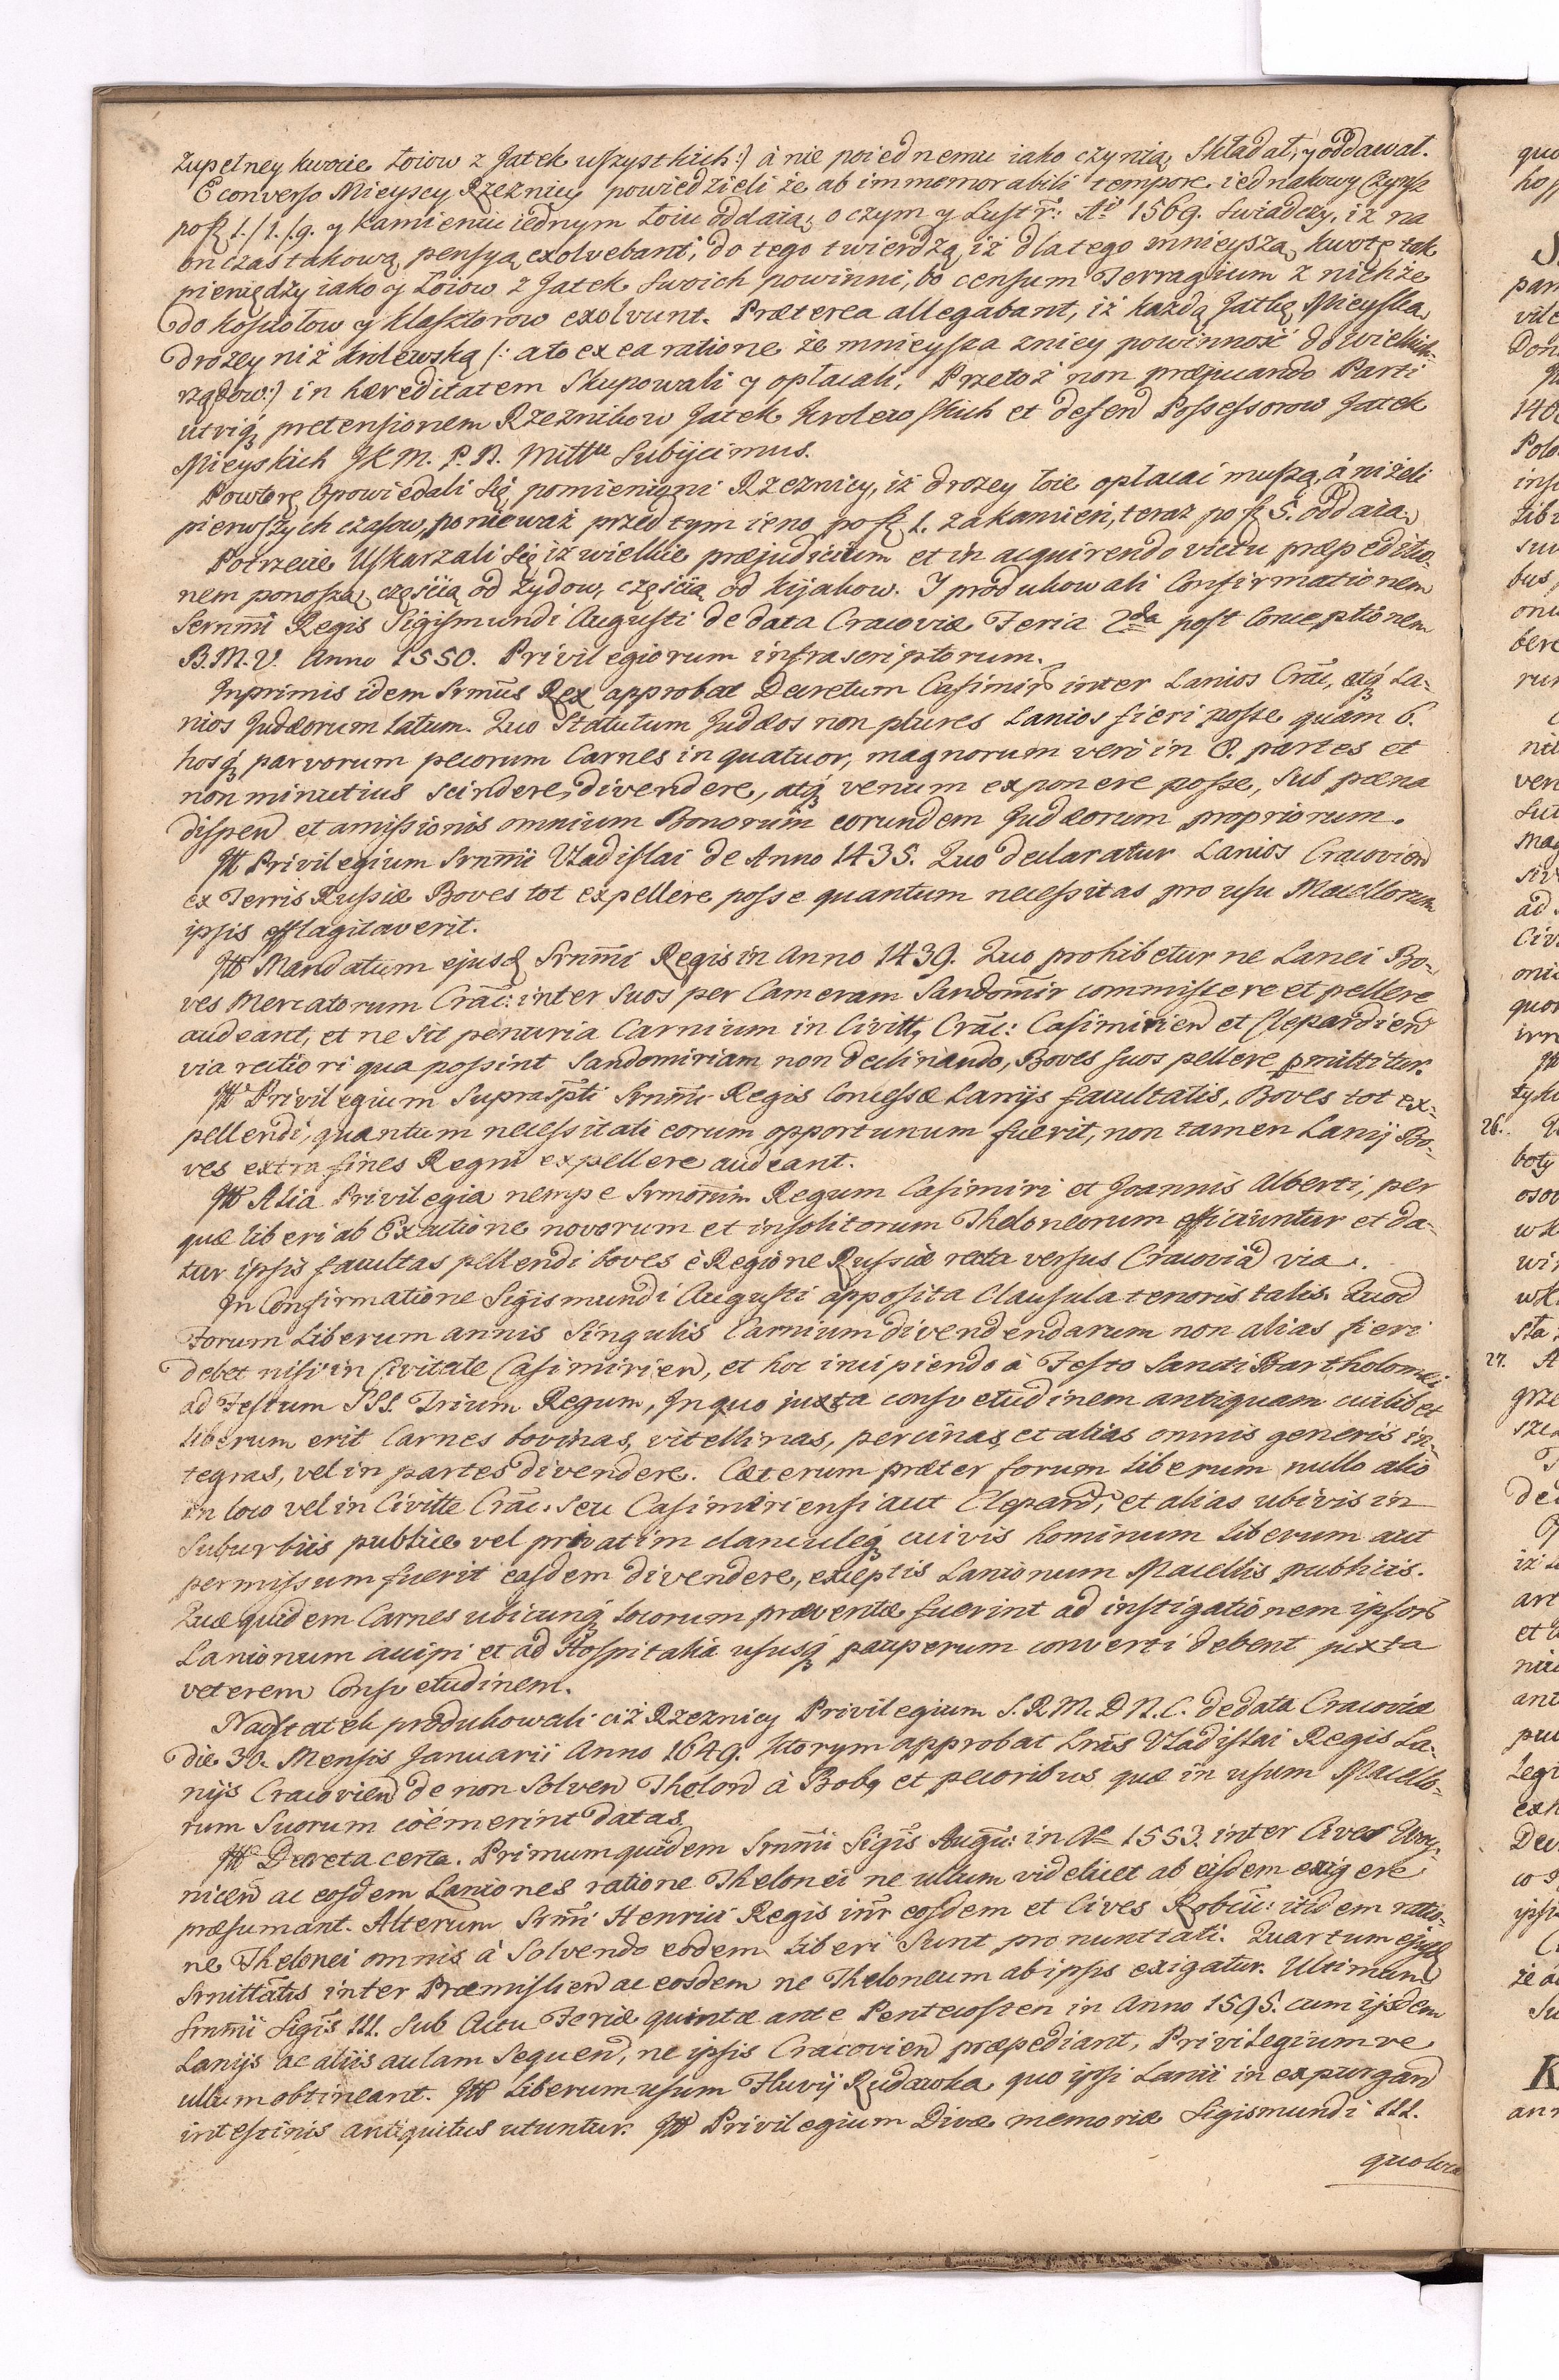 zupełney kwocie łoiow z Jatek uszystkich:) á nie poiednemu iako czynią, Składał, y oddawał.
E converso Mieyscy Rzeznicy powiedzieli że ab immemorabili tempore iednakowy Czynsz
po fl. 1./1./.9. y kamieniu iednym łoiu oddaią, o czym y Lustr: Aō 1569. świadczy, iż na
on czas takową pensyą exolvebant, do tego twierdzą, iż dlatego mnieyszą kwotę tak
pieniędzy iako y łoiow z Jatek swoich powinni, bo censum Terragium z nichże
do kosciołow y klasztorow exolvunt. Præterea allegabant, iż każdą Jatkę Mieyską
drożey niż krolewską (: a to ex ea ratione że mnieysza zniey powinność do wielkich
rządow:) in hæreditatem Skupowali y opłacali, Przetoż non præjucando Parti
utriq3 pretensionem Rzeznikow Jatek Krolewskich et defend Possessorow Jatek
Mieyskich JKM. P. N. Mittᵗᵉ Subijcimus.
Powtorę Opowiedali się pomienieni Rzeznicy, iż drożey łoie opłacać muszą, á niżeli
pierwszych czasow, ponieważ przed tym ieno po fl. 1. za kamień, teraz po fl 5. oddaią.
Potrzecie Uskarżali się iż wielkie præjudicium et in acquirendo victu præpeditio-
nem ponoszą, częścią od Żydow, częścią od kijakow. I produkowali Confirmationem
Sernm̄i Regis Sigismundi Augusti de data Cracoviæ Feria 2da post Conceptionem
B.M.V. Anno 1550. Privilegiorum infrascriptorum.
Inprimis idem Srm̄us Rex approbat Decretum Casimiri inter Lanios Crāc, atq3 La-
nios Judæorum latum. Quo Statutum Judæos non plures Lanios fieri posse quam 6.
hosq3 parvorum pecorum Carnes in quatuor, magnorum vero in 8. partes et
non minutius scindere, divendere, atq3 venum exponere posse, sub pæna
dispen et amissionis omnium Bonorum eorundem Judæorum propriorum.
Itt Privilegium Srnm̄i Vladislai de Anno 1435. Quo declaratur Lanios Cracovien
ex Terris Russiæ Boves tot expellere posse quantum necessitas pro usu Macellorum
ipsis efflagitaverit.
Itt Mandatum ejusd Srnm̄i Regis in Anno 1439. Quo prohibetur ne Lanei Bo-
ves Mercatorum Crāc: inter suos per Cameram Sandomir commiscere et pellere
audeant, et ne sit penuria Carnium in Civitt, Crāc: Casimirien et Clepardien
via rectiori qua possint Sandomiriam non declinando, Boves suos pellere pmittitur.
Itt Privilegium Suprasp̄ti Srnm̄i Regis Concessæ Lanijs facultatis, Boves tot ex-
pellendi, quantum necessitati eorum opportunum fuerit, non tamen Lanij Bo-
ves extra fines Regni expellere audeant.
Itt Alia Privilegia nempe Srmorum Regum Casimiri et Joannis Alberti, per
quæ liberi ab Exactione novorum et insolitorum Theloneorum efficiuntur et da-
tur ipsis facultas pellendi boves è Regione Russiæ recta versus Cracoviā via.
In Confirmatione Sigismundi Augusti apposita Clausula tenoris talis. Quod
Forum Liberum annis Singulis Carnium divendendarum non alias fieri
debet nisi in Civitate Casimirien, et hoc incipiendo à Festo Sancti Bartholomæi
ad Festum SSS. Trium Regum, In quo juxta consvetudinem antiquam cuilibet
liberum erit Carnes bovinas, vitellinas, porcinas, et alias omnis generis in-
tegras, vel in partes divendere. Cæterum præter forum liberum nullo alio
in loco vel in Civitte Crāc. seu Casimiriensi aut Clepard, et alias ubivis in
Suburbiis publice vel privatim clanculeq3 cuivis hominum liberum aut
permissum fuerit easdem divendere, exceptis Lanionum Macellis publicis.
Quæ quidem Carnes ubicunq3 locorum præventæ fuerint ad instigationem ipsorū
Lanionum accipi et ad Hospitalia ususq3 pauperum converti debent juxta
veterem Consvetudinem.
Naostatek produkowali ciż Rzeznicy Privilegium S. R M. D N. C. de data Cracoviæ
die 30. Mensis Januarii Anno 1649. ktorym approbat Lrās Vladislai Regis La-
nijs Cracovien de non Solven Thelon à Bobq et pecoribus quæ in usum Macello-
rum Suorum coëmerint datas.
Itt Decreta certa. Primum quidem Srnm̄i Sigis Augū: in Aō 1553. inter Cives
nicen ac eosdem Laniones ratione Thelonei ne ullum videlicet ab eisdem exigere
præsumant. Alterum Srm̄i Henrici Regis inr eosdem et Cives itidem ratio-
ne Thelonei omnis à Solvendo eodem liberi Sunt pronuntiati. Quartum ejusd
Srnittātis inter Præmislien ac eosdem ne Theloneum ab ipsis exigatur. Ultimum
Srnm̄i Sigis III. Sub Actu Feriæ quintæ ante Pentecosten in Anno 1595. cum ijsdem
Lanijs ac aliis aulam Sequen, ne ipsis Cracovien præpediant, Privilegiumve
ullum obtineant. Itt Liberum usum Fluvij Rudawka quo ipsi Lanii in expurgand
intestinis antiquitus utuntur. Itt Privilegium Divæ memoriæ Sigismundi III.
26.
27.